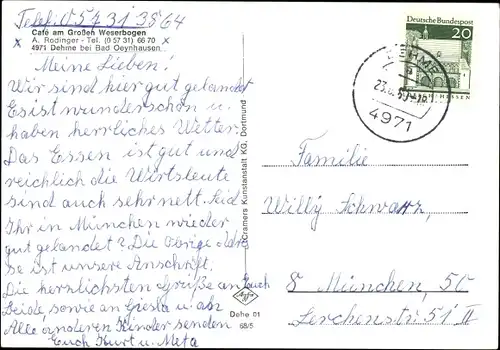 Telef. 0 57 31 35 64
Café am Großen Weserbogen
x A. Rodinger - Tel. (0 57 31) 66 70 x
4971 Dehme bei Bad Oeynhausen
Meine Lieben!
Wir sind hier gut gelandet
Es ist wunderschön u.
haben herrliches Wetter.
Das Essen ist gut und
reichlich die Wirtsleute
sind auch sehr nett. Seid
Ihr in München wieder
gut gelandet? Die Obrige Adre
se ist unsere Anschrift.
Die herzlichsten Grüße an Euch
Beide, sowie an Gisela u. an
Alle anderen Kinder senden
Euch Kurt u. Meta
Cramers Kunstanstalt KG, Dortmund
Agfa
Dehe 01
68/5
Deutsche Bundespost
20
DEHME
a
4971
Familie
Willy Schwarz,
8 München, 50
Lerchenstr. 51 II